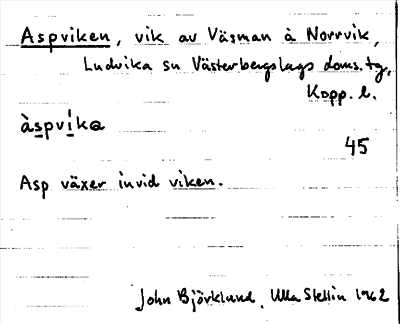 Aspviken, vik av Väsman å Norrvik,
Ludvika sn Västerbergslags doms. tg,
Kopp. l.
àspvika
45
Asp växer invid viken.
John Björklund, Ulla Stellin 1962